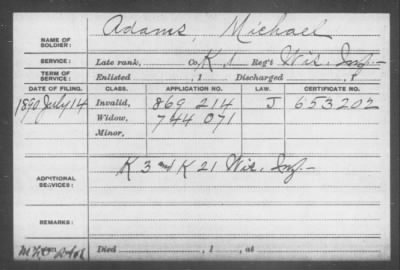 NAME OF SOLDIER: Adams, Michael
SERVICE: Late rank, Co. K 1 Reg't Wis. Inf.
TERM OF SERVICE: Enlisted , 1 Discharged , 1
DATE OF FILING. CLASS. APPLICATION NO. LAW. CERTIFICATE NO.
1890 July 14 Invalid, 869 214 J 653202
Widow, 744 071
Minor,
ADDITIONAL SERVICES: K 3 and K 21 Wis. Inf.
REMARKS:
Died , 1 , at